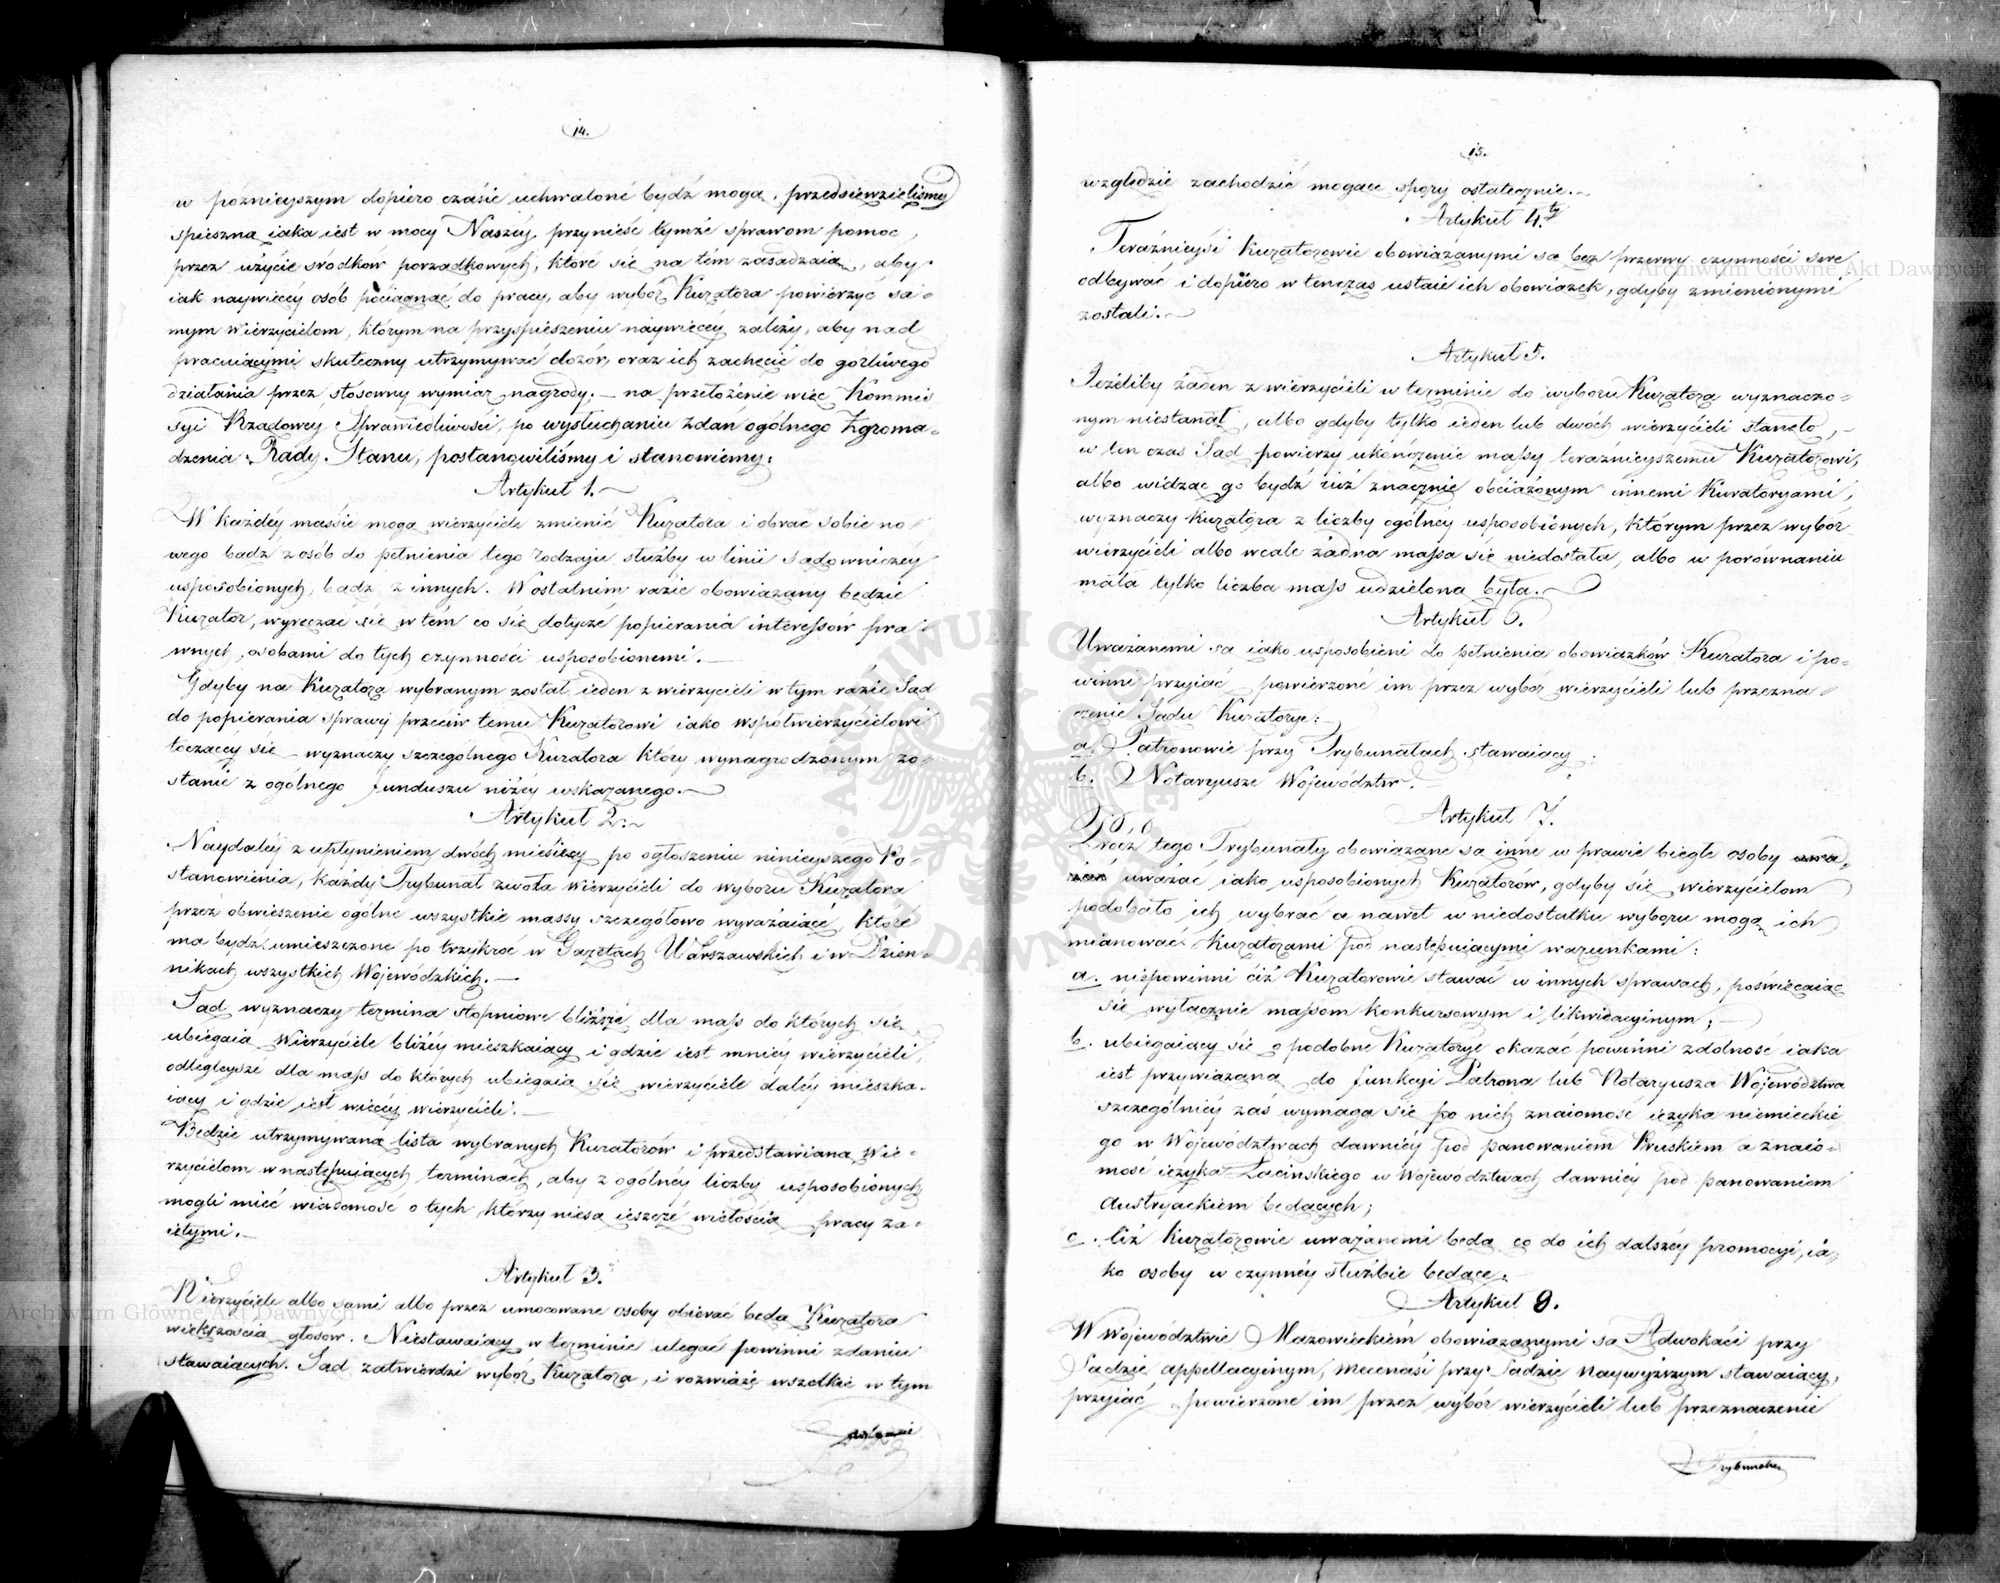 14.
w poznieyszym dopiero czásie uchwaloné bydź mogą, przedsiewzieliśmy
spieszną iaka iest w mocy Naszéy przynieść tymże sprawom pomoc,
przez użycie srodków porządkowych, które się na tém zasadzaią, aby
iak naywięcéy osób pociągnąć do pracy, aby wybór Kuratora powierzyć sa-
mym Wierzycielom, którym na przyspieszeniu naywięcéy zależy, aby nad
pracuiącymi skuteczny utrzymywać dozór, oraz ich zachęcić do gorliwego
działania przez stósowny wymiar nagrody; — na przełożenie więc Kommis
syi Rządowey Sprawiedliwości, po wysłuchaniu zdań ogólnego Zgroma-
dzenia Rady Stanu, postanowiliśmy i stanowiemy:
Artykuł 1.
W każdey massie mogą wierzyciele zmienić Kuratora i obrać sobie no-
wego bądź z osób do pełnienia tego rodzaju służby w linii sądowniczéy
usposobionych, bądz z innych. W ostatnim razie obowiązany będzie
Kurator, wyręczać się w tém co się dotycze popierania interessów pra-
wnych, osobami do tych czynności usposobionemi. —
Gdyby na Kuratora wybranym został ieden z wierzycieli w tym razie Sąd
do popierania sprawy przeciw temu Kuratorowi iako współwierzycielowi
toczącéy się — wyznaczy szczególnego Kuratora który wynagrodzonym zo-
stanie z ogólnego funduszu niżéy wskazanego. —
Artykuł 2.
Naydaléy z upłynieniem dwóch miesięcy po ogłoszeniu ninieyszego Po-
stanowienia, każdy Trybunał zwoła wierzycieli do wyboru Kuratora
przez obwieszenie ogólne wszystkie massy szczegółowo wyrażaiące, które
ma bydź umieszczone po trzykroć w Gazetach Warszawskich i w Dzien-
nikach wszystkich Wojewódzkich. —
Sąd wyznaczy termina stopniowe bliższe dla mass do których się
ubiegaią Wierzyciele bliżéy mieszkaiący i gdzie iest mniéy wierzycieli,
odległeysze dla mass do których ubiegaią się wierzyciele daléy mieszka-
iący i gdzie iest więcéy wierzycieli. —
Będzie utrzymywaną lista wybranych Kuratorów i przedstawianą Wie-
rzycielom w następuiących terminach, aby z ogólnéy liczby usposobionych
mogli mieć wiadomość o tych, którzy niesą ieszcze wielością pracy za-
iętymi. —
Artykuł 3.
Wierzyciele albo sami albo przez umocowane osoby obierać będą Kuratora
większością głosow. Niestawaiący w terminie ulegać powinni zdaniu
stawaiących. Sąd zatwierdzi wybór Kuratora, i rozwiąże wszelkie w tym
15.
względzie zachodzić mogące spory ostatecznie. —
Artykuł 4ty
Teraźnieysi Kuratorowie obowiązanymi są bez przerwy czynności swe
odbywać i dopiero w tenczas ustaie ich obowiązek, gdyby zmienionymi
zostali. —
Artykuł 5.
Jeżeliby żaden z wierzycieli w terminie do wyboru Kuratora wyznaczo-
nym niestanął, albo gdyby tylko ieden lub dwóch wierzycieli stanęło, —
w ten czas Sąd powierzy ukończenie massy teraźnieyszemu Kuratorowi,
albo widząc go bydź iuż znacznie obciążonym innemi Kuratoryami,
wyznaczy Kuratora z liczby ogólnéy usposobionych, którym przez wybór
wierzycieli albo wcale żadna massa się niedostała, albo w porównaniu
mała tylko liczba mass udzieloną była. —
Artykuł 6.
Uważanemi są iako usposobieni do pełnienia obowiązków Kuratora i po-
winni przyiąć powierzoné im przez wybór wierzycieli lub przezna-
czenie Sądu Kuratorye:
a. Patronowie przy Trybunałach stawaiący.
b. Notaryusze Województw. —
Artykuł 7.
Prócz tego Trybunały obowiązane są inne w prawie biegłe osoby
uważać iako usposobionych Kuratorów, gdyby się wierzycielom
podobało ich wybrać a nawet w niedostatku wyboru mogą ich
mianować Kuratorami pod następuiącymi warunkami:
a. niepowinni ciż Kuratorowie stawać w innych sprawach, poświęcaiąc
się wyłącznie massom konkursowym i likwidacyinym; —
b. ubiegaiący się o podobne Kuratorye okazać powinni zdolność iaka
iest przywiązaną do funkcyi Patrona lub Notaryusza Województwa
szczególniéy zaś wymaga się po nich znaiomość ięzyka niemieckie
go w Województwach dawniéy pod panowaniem Pruskiém a znaio-
mość ięzyka Łacińskiego w Województwach dawniéy pod panowaniem
Austryackiém będących;
c. Ciż Kuratorowie uważanemi będą co do ich dalszéy promocyi, ia-
ko osoby w czynnéy służbie będące.
Artykuł 8.
W Województwie Mazowieckiém obowiązanymi są Adwokaci przy
Sądzie appellacyinym, Mecenasi przy Sądzie Naywyższym stawaiący,
przyiąć powierzone im przez wybór wierzycieli lub przeznaczenie
Trybunału
ARCHIWUM GŁÓWNE AKT DAWNYCH
Archiwum Główne Akt Dawnych
Archiwum Główne Akt Dawnych